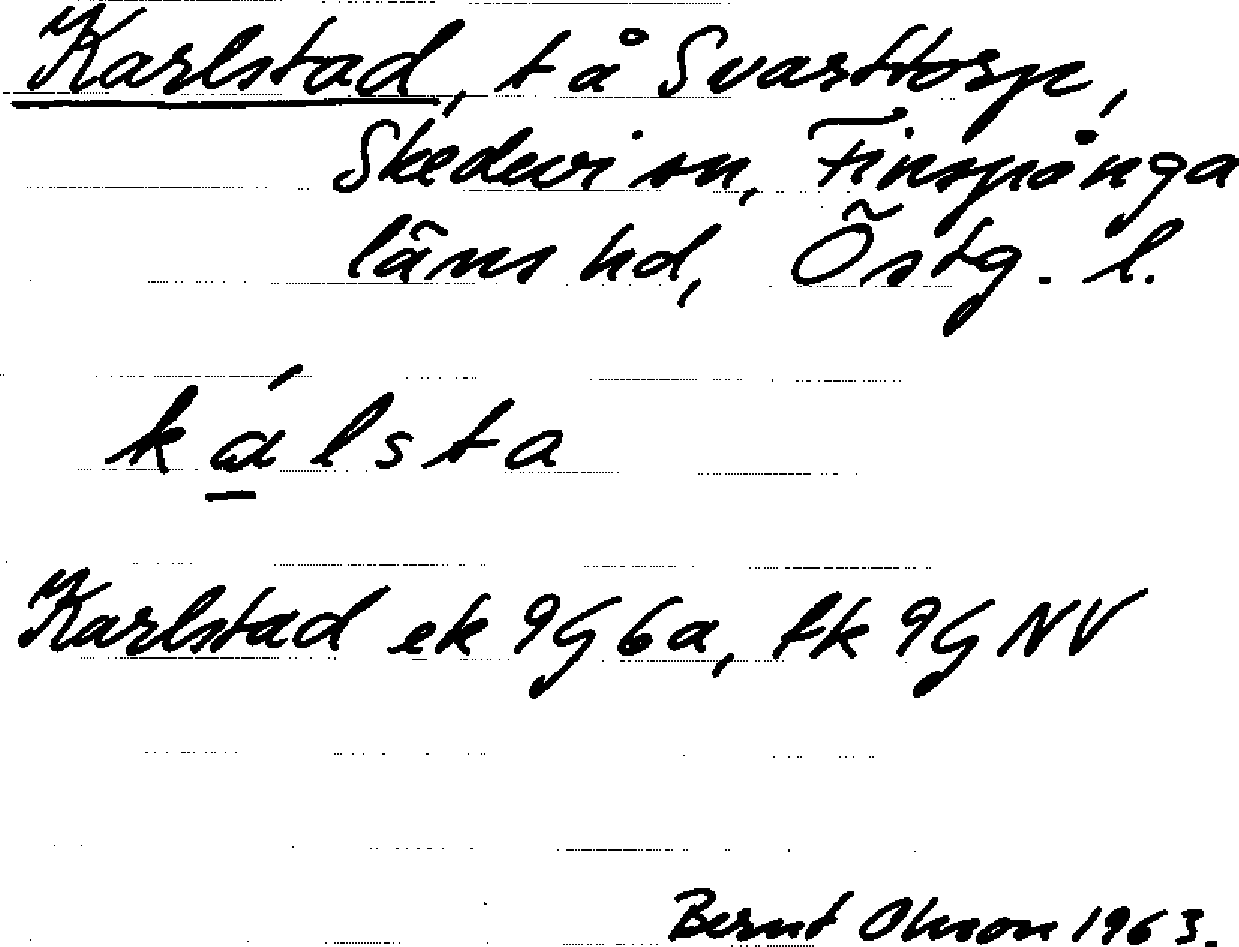 Karlstad, t å Svarttorp,
Skedevi sn, Finspånga
läns hd, Östg. l.
kálsta
Karlstad ek 9G 6a, tk 9G NV
Bernt Olsson 1963.